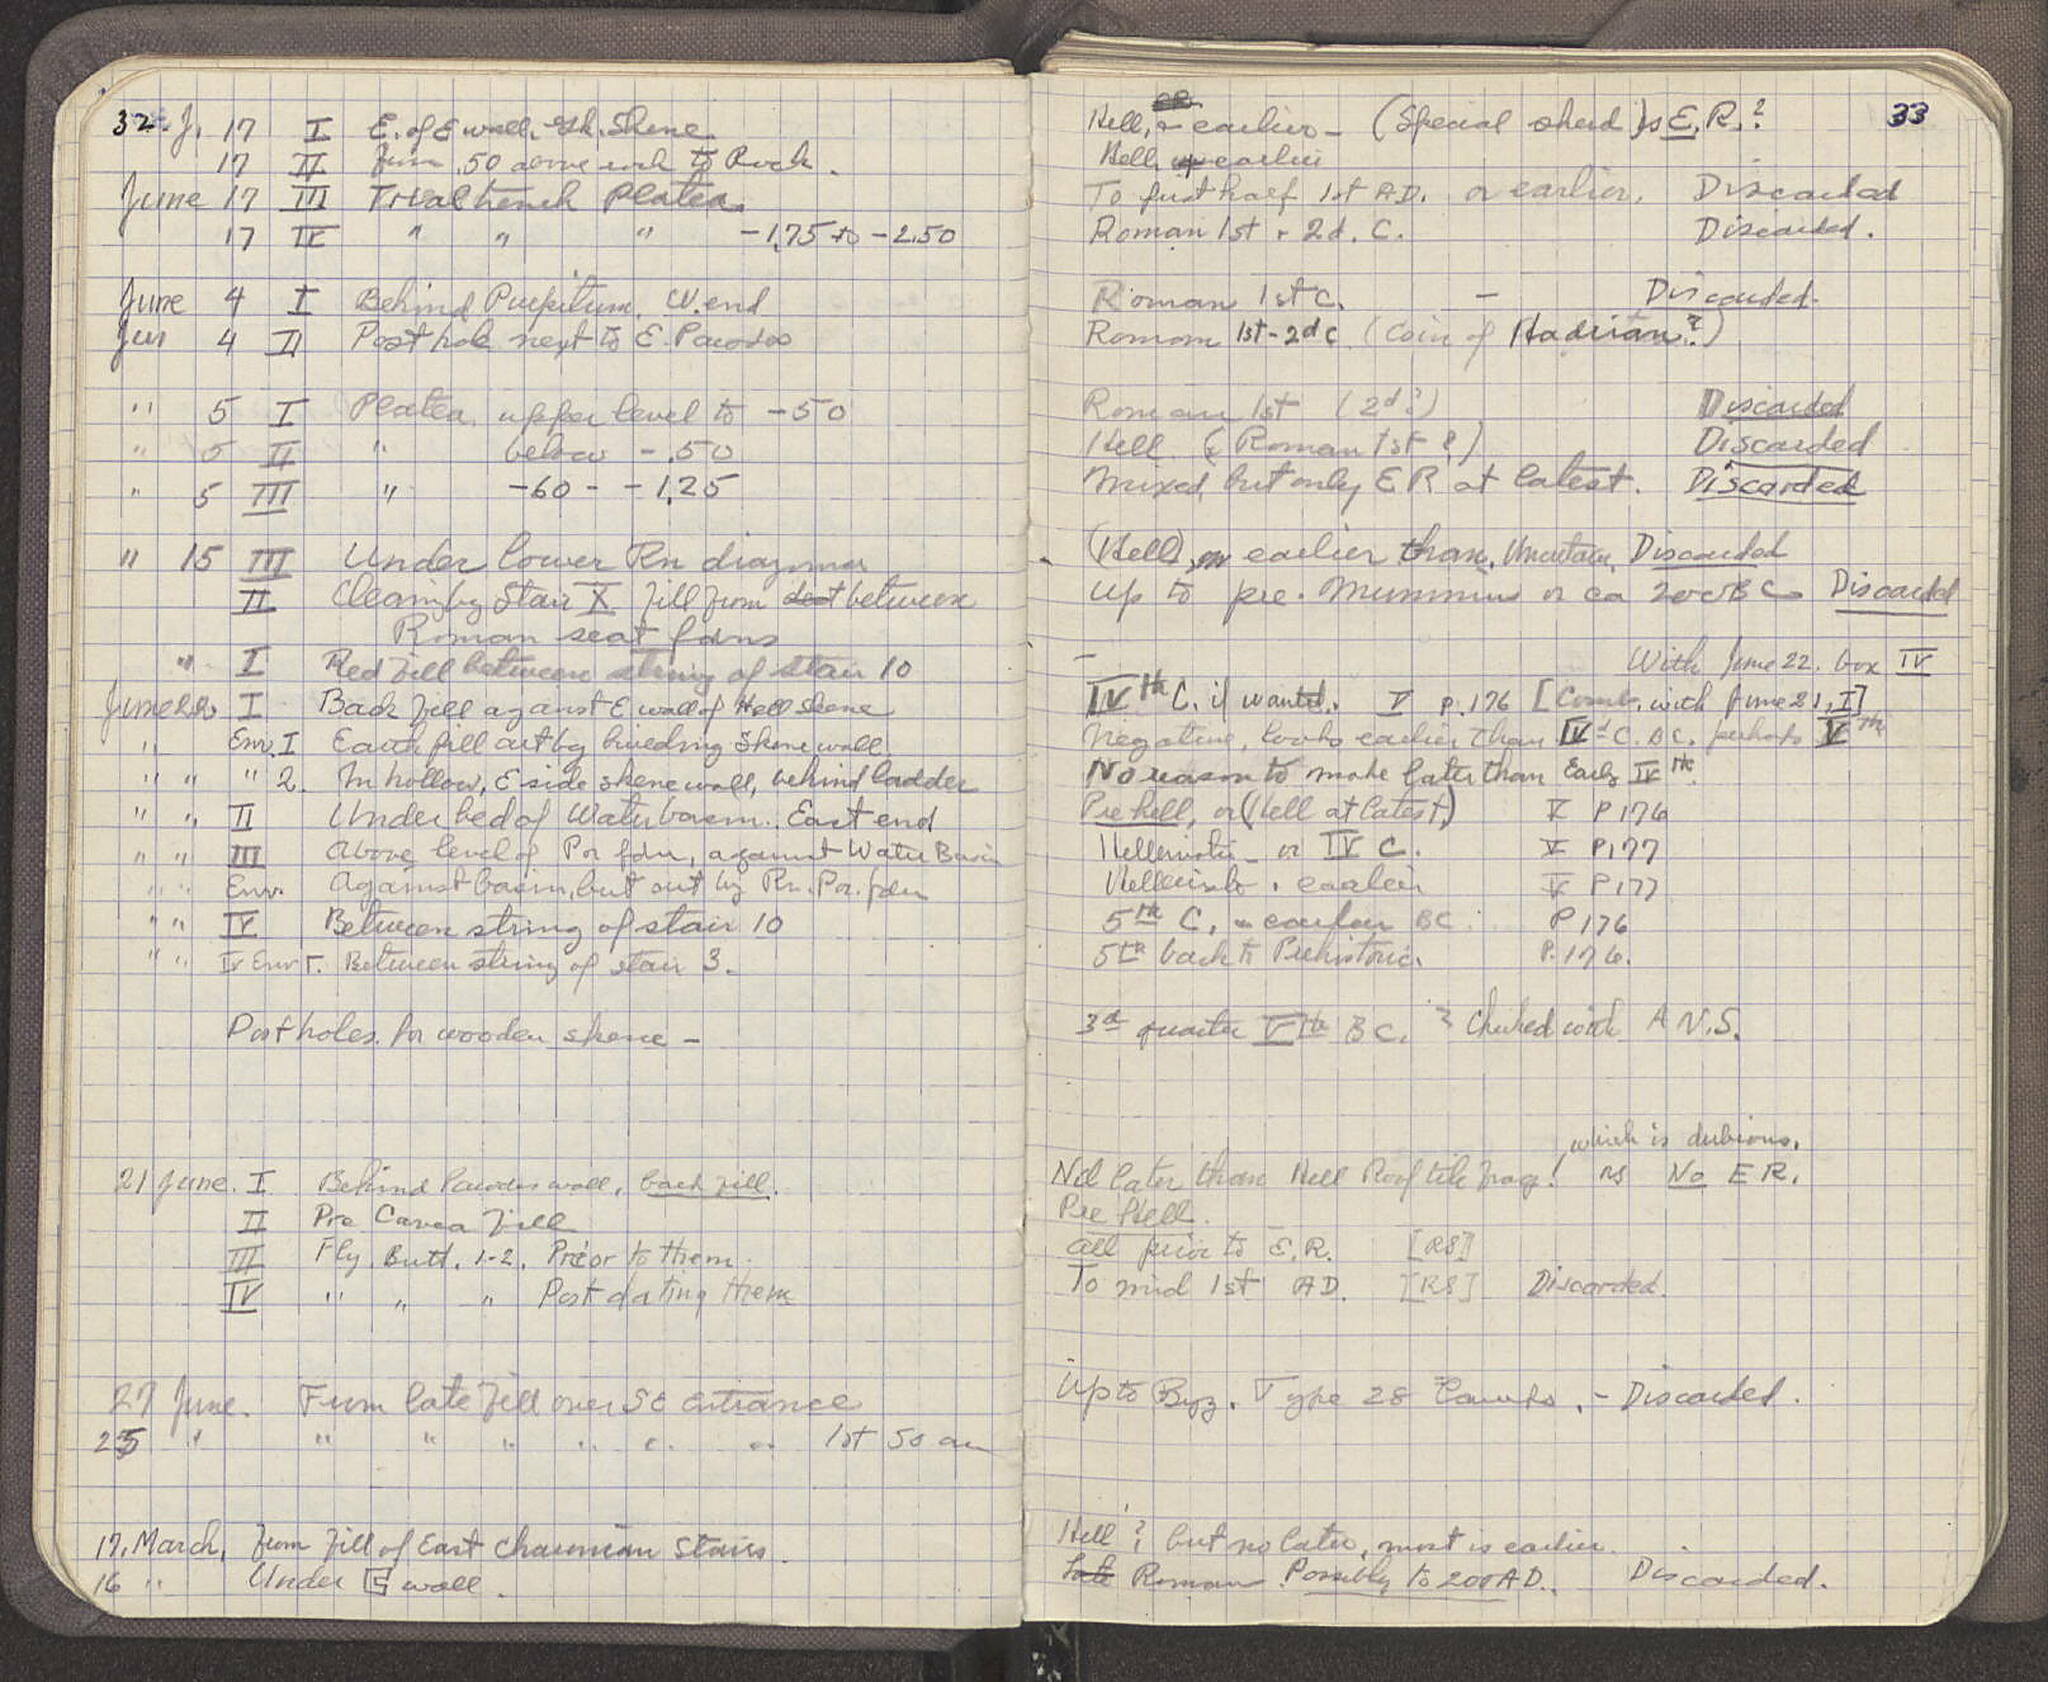 32. J. 17 I E. of E wall. Gk. Skene
17 II from .50 above rock to Rock.
June 17 III Trial trench Platea.
17 IV " " " -1.75 to -2.50
June 4 I Behind Pulpitum, W. end
Jun 4 II Post hole next to E. Parodos
" 5 I Platea, upper level to -50
" 5 II " below -.50
" 5 III " -60 - -1.25
" 15 III Under lower Rn diazoma
II Cleaning Stair X fill from between
Roman seat fdns
" I Red fill between string of stair 10
June 22 I Back fill against E wall of Hell Skene
" Env. I Earth fill cut by building Skene wall.
" " " 2. In hollow, E side skene wall, behind ladder
" " II Under bed of Water basin. East end
" " III Above level of Por fdn, against Water Basin
" " Env. Against basin, but cut by Rn. Por. fdn
" " IV Between string of stair 10
" " IV Env Γ. Between string of stair 3.
Post holes for wooden skene -
21 June. I Behind Parodos wall, back fill.
II Pre Cavea fill
III Fly. Butt. 1-2. Prior to them.
IV " " " Post dating them
27 June. From late fill over SE Entrance
25 " " " " " " " 1st 50 cm
17. March, from fill of East charonian stairs.
16 " Under E wall.
33
Hell, or earlier - (Special sherd) is E. R.?
Hell. earlier
To first half 1st AD. or earlier. Discarded
Roman 1st + 2d. C. Discarded.
Roman 1st C. - Discarded.
Roman 1st - 2d C (Coin of Hadrian?)
Roman 1st (2d?) Discarded
Hell. (Roman 1st?) Discarded
Mixed, but only E R at latest. Discarded
(Hell), or earlier than. Uncertain. Discarded
Up to pre. Mummius or ca 200 B C Discarded
- With June 22. box IV
IVth C. if wanted. V p. 176 [Comb. with June 21, I]
Negative, looks earlier than IVd C. B.C. perhaps Vth
No reason to make later than Early IVth.
Pre hell, or (Hell at latest) V P 176
Hellenistic - or IV C. V P. 177
Hellenistic. earlier V P 177
5th C, or earlier BC. P 176
5th back to Prehistoric. P. 176.
3d quarter Vth BC. ? Checked with A N.S.
which is dubious.
Nil later than Hell Roof tile frag! RS No E R.
Pre Hell.
All prior to E.R. [RS]
To mid 1st AD. [RS] Discarded.
Up to Byz. Type 28 Lamps. - Discarded.
Hell?, but no later, most is earlier.
Roman. Possibly to 200 A D. Discarded.